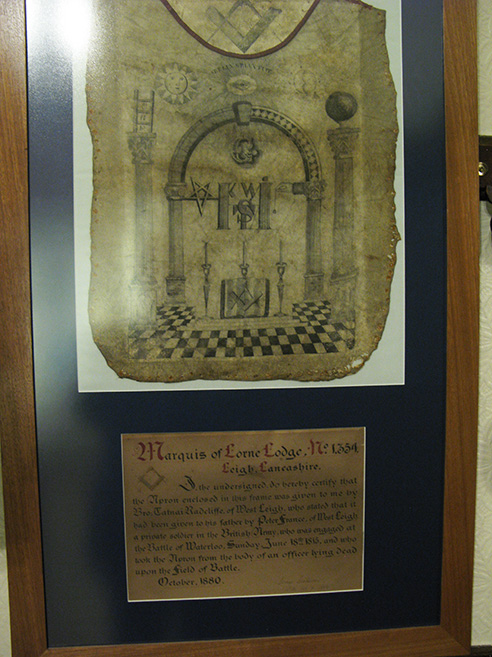 Marquis of Lorne Lodge, No 1,354
Leigh, Lancashire.
I, the undersigned do hereby certify that
the Apron enclosed in this frame was given to me by
Bro. Radcliffe, of West Leigh, who stated that it
had been given to his father by Peter France, of West Leigh
a private soldier in the British Army, who was engaged at
the Battle of Waterloo, Sunday June 18th 1815, and who
took the Apron from the body of an officer lying dead
upon the Field of Battle.
October, 1880.